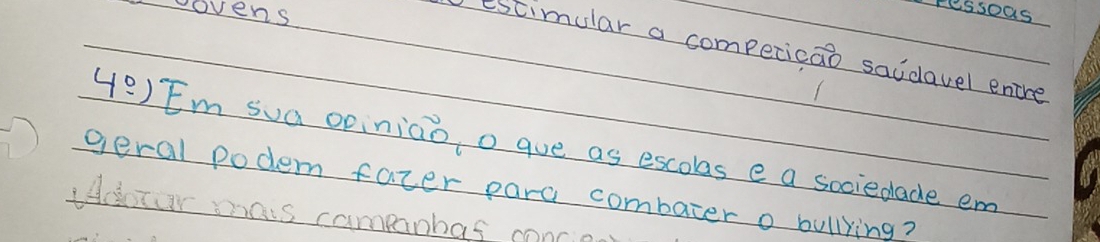 Pessoas
jovens estimular a competição saúdavel entre
4º) Em sua opinião, o que as escolas e a sociedade em
geral podem fazer para combater o bullying?
Adotar mais campanhas